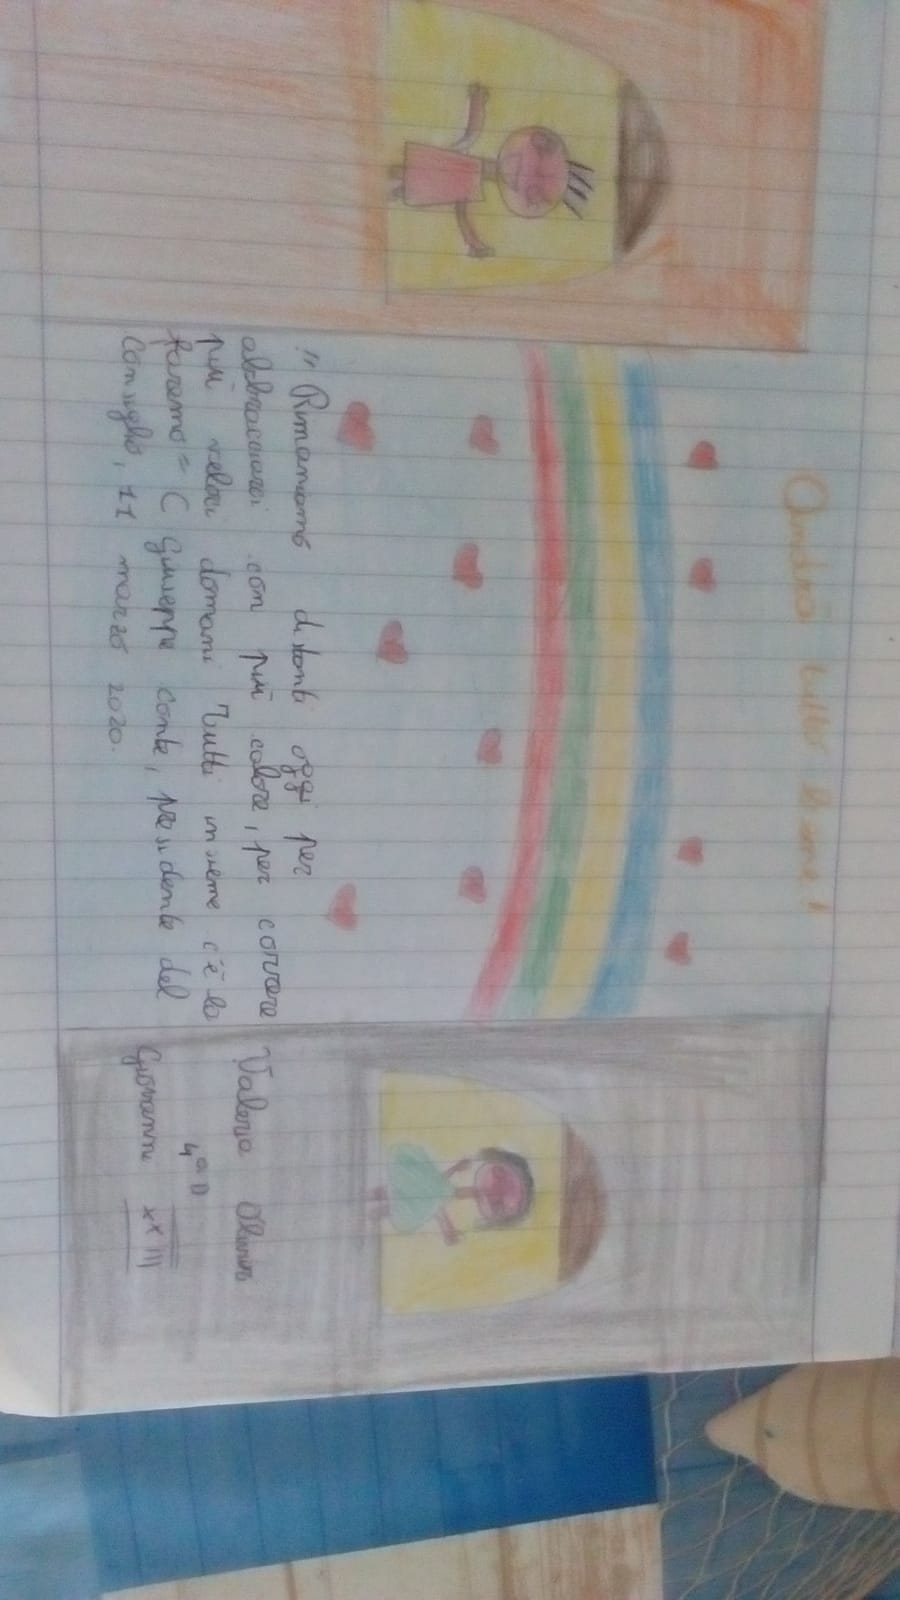 Andrà tutto bene!
" Rimaniamo distanti oggi per
abbracciarci con più calore, per correre
più veloci domani Tutti insieme c'è la
faremo = ( Giuseppe conte, presidente del
Consiglio, 11 marzo 2020.
Valeria
4ª D
Giovanni XXIII